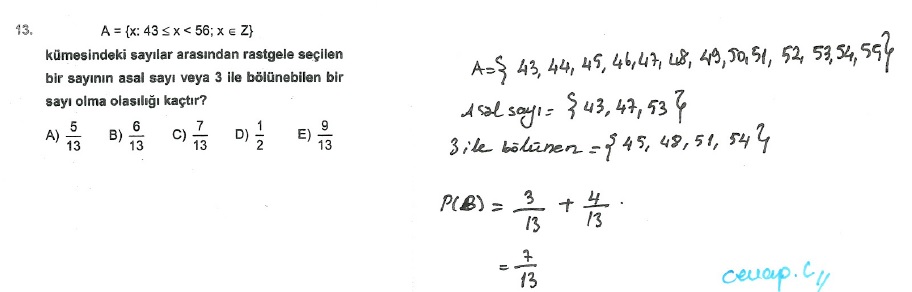 13. A = {x: 43 ≤ x < 56; x ∈ Z}
kümesindeki sayılar arasından rastgele seçilen
bir sayının asal sayı veya 3 ile bölünebilen bir
sayı olma olasılığı kaçtır?
A) 5/13 B) 6/13 C) 7/13 D) 1/2 E) 9/13
A={ 43, 44, 45, 46, 47, 48, 49, 50, 51, 52, 53, 54, 55}
Asal sayı = {43, 47, 53}
3 ile bölünen = {45, 48, 51, 54}
P(B) = 3/13 + 4/13 .
= 7/13
cevap. C //